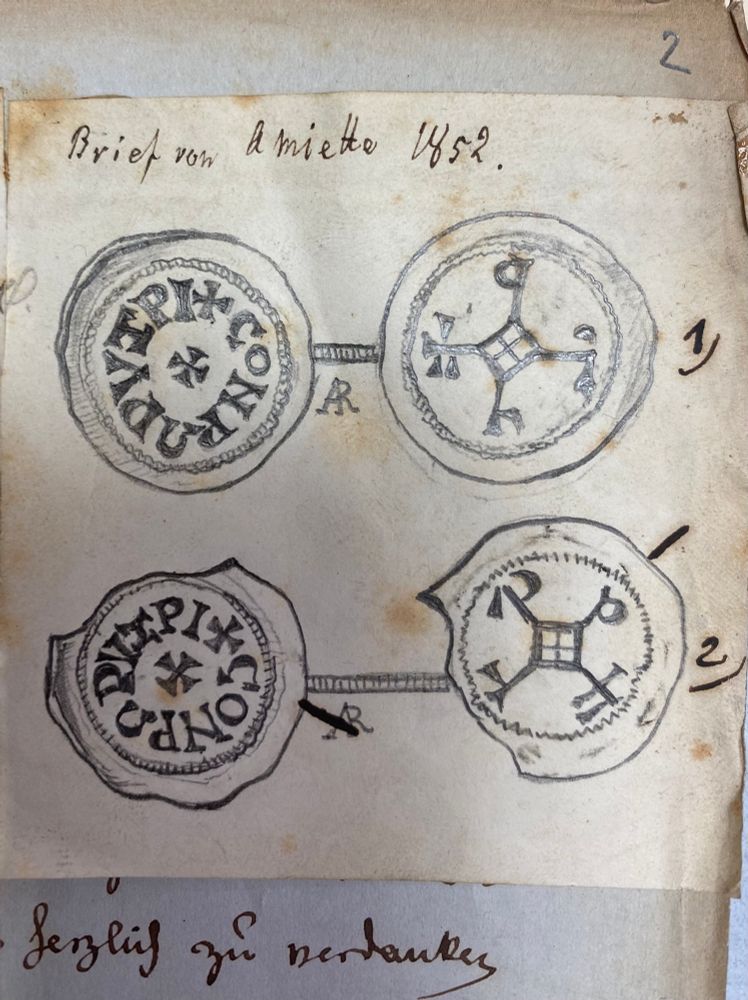 2
Brief von Amiette 1852.
✠CONRΩDVΣPI
AR
1)
✠CONPΩRVΣPI
AR
2)
herzlich zu verdanken